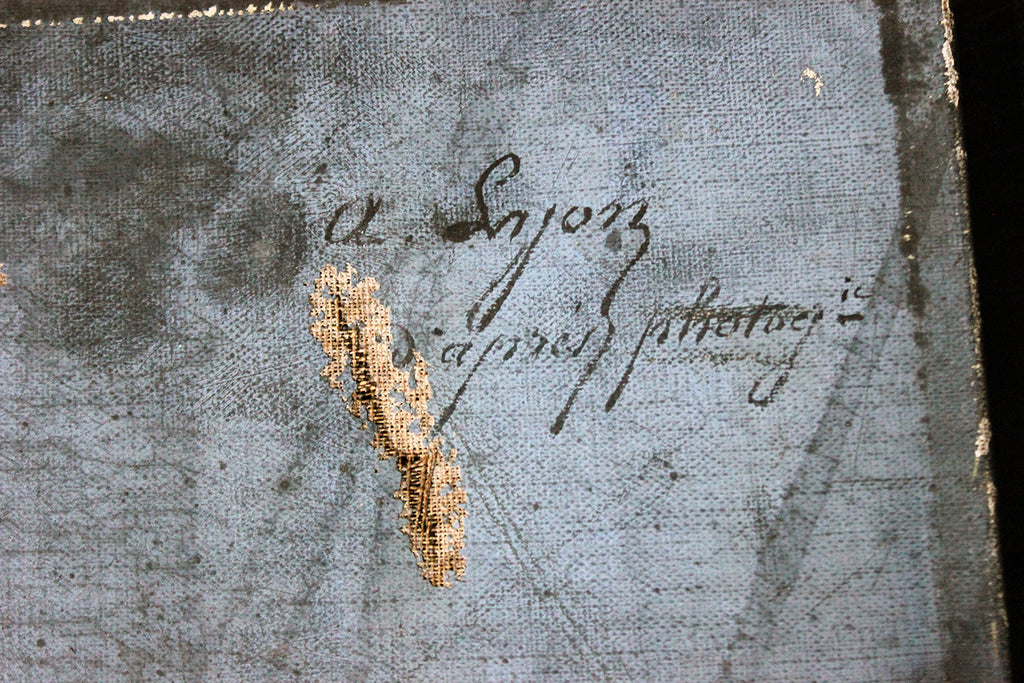 a. Lajon
d'après photogie